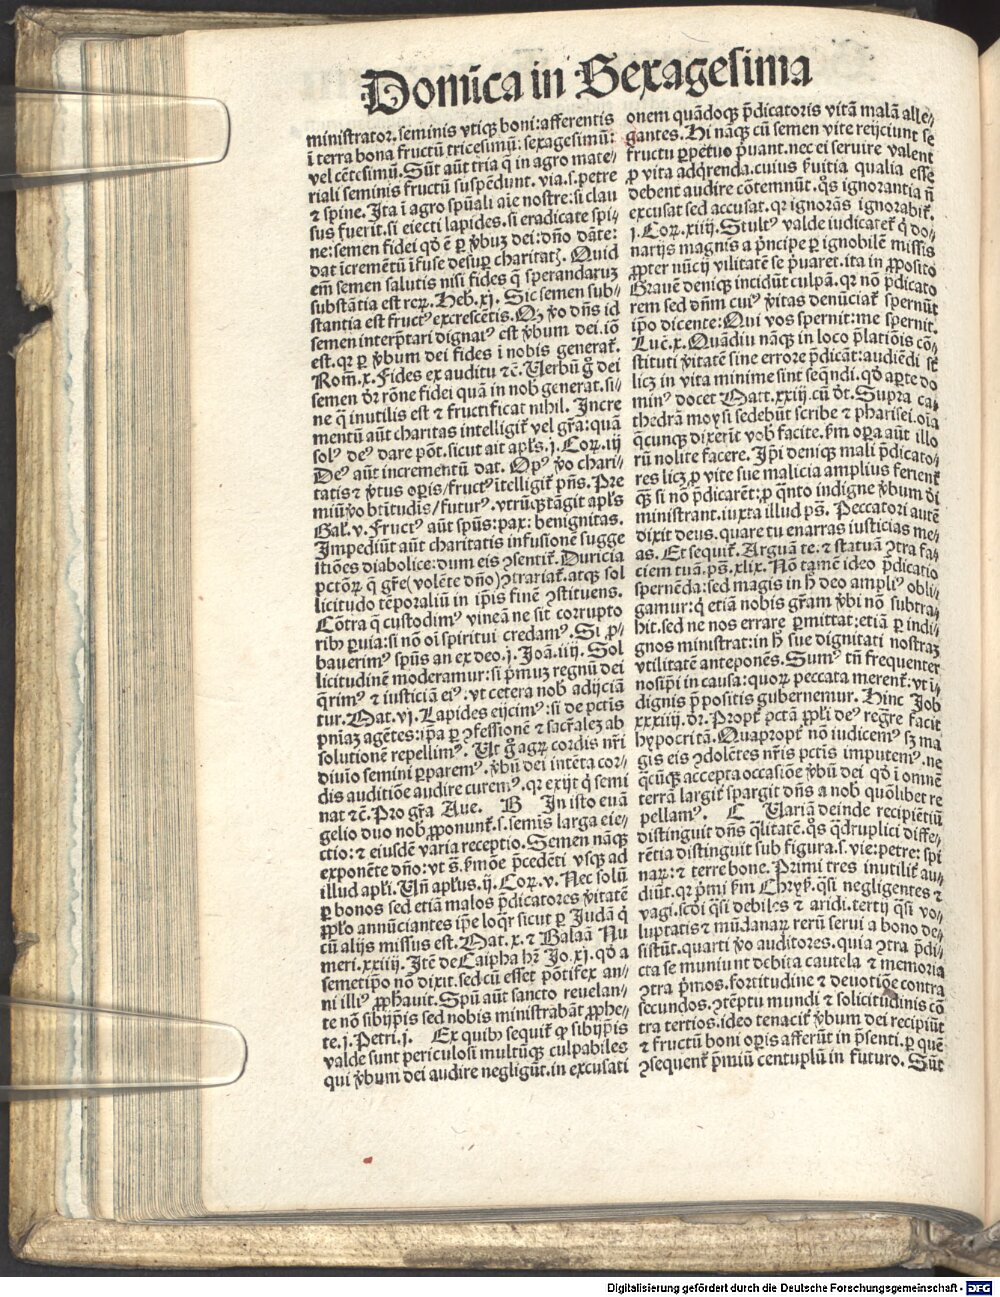 Domīca in Sexagesima
ministrator. seminis vtiqꝫ boni: afferentis
ī terra bona fructū tricesimū: sexagesimū:
vel cētesimū. Sūt aūt tria q̄ in agro mate⸗
riali seminis fructū suspēdunt. via. s. petre
⁊ spine. Ita ī agro spūali aīe nostre: si clau
sus fuerit. si eiecti lapides. si eradicate spi⸗
ne: semen fidei qd̄ ē ꝑ v̄buꝫ dei: dn̄o dāte:
dat īcremētū īfuse desuꝑ charitatꝭ. Quid
em̄ semen salutis nisi fides q̄ sperandaruꝫ
substātia est reꝝ. Heb. xi. Sic semen sub⸗
stantia est fructꝰ excrescētis. Qꝫ v̄o dn̄s id
semen interp̄tari dignatꝰ est v̄bum dei. iō
est. qꝛ ꝑ v̄bum dei fides ī nobis generat̄.
Rom̄. x. Fides ex auditu ⁊c̄. Verbū g̊ dei
semen dr̄ rōne fidei quā in nob̄ generat. si⸗
ne q̄ inutilis est ⁊ fructificat nihil. Incre
mentū aūt charitas intelligit̄ vel gr̄a: quā
solꝰ deꝰ dare pōt. sicut ait apl̄s. j. Coꝝ. iij
Deꝰ aūt incrementū dat. Opꝰ v̄o chari⸗
tatis ⁊ v̄tus oꝑis / fructꝰ ītelligit̄ pn̄s. Pre
miū v̄o bt̄itudis / futurꝰ. vtrūqꝫ tāgit apl̄s
Gal̄. v. Fructꝰ aūt spūs: pax: benignitas.
Impediūt aūt charitatis infusionē sugge
stiōes diabolice: dum eis ↄsentit̄. Duricia
pctōꝝ q̄ gr̄e (volēte dn̄o) ↄtrariat̄. atqꝫ sol
licitudo tēporaliū in ip̄is finē ↄstituens.
Cōtra q̄ custodimꝰ vineā ne sit corrupto
ribꝫ ꝑuia: si nō oī spiritui credamꝰ. Si ꝓ⸗
bauerimꝰ spūs an ex deo. j. Joā. iiij. Sol
licitudinē moderamur: si p̄muꝫ regnū dei
q̄rimꝰ ⁊ iusticiā eiꝰ: vt cetera nob̄ adijciā
tur. Mat. vj. Lapides eijcimꝰ: si de pctis
pn̄iaꝫ agētes: ip̄a ꝑ ↄfessionē ⁊ sacr̄alez ab
solutionē repellimꝰ. Ut g̊ agꝝ cordis nr̄i
diuīo semini p̄paremꝰ. v̄bū dei intēta cor⸗
dis auditiōe audire curemꝰ. qꝛ exijt q̇ semi
nat ⁊c̄. Pro gr̄a Aue. B In isto euā
gelio duo nob̄ ꝓponunt̄. s. semīs larga eie⸗
ctio: ⁊ eiusdē varia receptio. Semen nāqꝫ
exponēte dn̄o: vt s̄. s̄mōe p̄cedēti vsqꝫ ad
illud apl̄i. Un̄ apl̄us. ij. Coꝝ. v. Nec solū
ꝑ bonos sed etiā malos p̄dicatores v̄itatē
ꝓp̄lo annūciantes ip̄e loqt̄ sicut ꝑ Judā q̇
cū alijs missus est. Mat. x. ⁊ Balaā Nu
meri. xxiiij. Itē de Caipha hr̄ Jo. xj. qd̄ a
semetip̄o nō dixit. sed cū esset pōtifex an⸗
ni illiꝰ ꝓphauit. Spū aūt sancto reuelan⸗
te nō sibijp̄is sed nobis ministrabāt ꝓphe⸗
te. j. Petri. j. Ex quibꝫ sequit̄ ꝙ sibijp̄is
valde sunt periculosi multūqꝫ culpabiles
qui v̄bum dei audire negligūt. in excusati
onem quādoqꝫ p̄dicatoris vitā malā alle⸗
gantes. Hi nāqꝫ cū semen vite reijciunt se
fructu ꝑpetuo p̄uant. nec ei seruire valent
ꝓ vita adq̇renda. cuius s̄uitia qualia esse
debent audire cōtemnūt. q̇s ignorantia n̄
excusat sed accusat. qꝛ ignorās ignorabit̄.
j. Coꝝ. xiiij. Stultꝰ valde iudicaret̄ q̇ do⸗
narijs magnis a p̄ncipe ꝑ ignobilē missis
ꝓpter nūcij vilitatē se p̄uaret. ita in ꝓposito
Grauē deniqꝫ incidūt culpā. qꝛ nō p̄dicato
rem sed dn̄m cuiꝰ v̄itas denūciat̄ spernūt
ip̄o dicente: Qui vos spernit: me spernit.
Luc̄. x. Quādiu nāqꝫ in loco p̄latiōis cō⸗
stituti v̄itatē sine errore p̄dicāt: audiēdi st̄
licꝫ in vita minime sint seq̄ndi. qd̄ aꝑte do
minꝰ docet Matt. xxiij. cū dt̄. Supra ca⸗
thedrā moysi sedebūt scribe ⁊ pharisei. oīa
q̄cunqꝫ dixerīt vob̄ facite. s̄m oꝑa aūt illo
rū nolite facere. Ip̄i deniqꝫ mali p̄dicato⸗
res licꝫ ꝓ vite sue malicia amplius ferient̄
qꝫ si nō p̄dicarēt: ꝓ q̄nto indigne v̄bum d̄i
ministrant. iuxta illud ps̄. Peccatori autē
dixit deus. quare tu enarras iusticias me⸗
as. Et sequit̄. Arguā te: ⁊ statuā ↄtra fa⸗
ciem tuā. ps̄. xlix. Nō tamē ideo p̄dicatio
spernēda: sed magis in h̄ deo ampliꝰ obli⸗
gamur: q̇ etiā nobis gr̄am v̄bi nō subtra⸗
hit. sed ne nos errare ꝑmittat: etiā ꝑ indi⸗
gnos ministrat: in h̄ sue dignitati nostraꝫ
vtilitatē anteponēs. Sumꝰ tn̄ frequenter
nosip̄i in causa: quoꝝ peccata merent̄: vt ī⸗
dignis p̄positis gubernemur. Hinc Job
xxxiiij. dr̄. Propt̄ pctā ꝓp̄li deꝰ regr̄e facit
hypocritā. Quapropt̄ nō iudicemꝰ sꝫ ma
gis eis ↄdolētes nr̄is pctis imputemꝰ. ne
q̄cūqꝫ accepta occasiōe v̄bū dei qd̄ ī omnē
terrā largit̄ spargit dn̄s a nob̄ quōlibet re
pellamꝰ. C Uariā deinde recipiētiū
distinguit dn̄s q̄litatē. q̇s q̄druplici diffe⸗
rētia distinguit sub figura. s. vie: petre: spi
naꝝ: ⁊ terre bone. Primi tres inutilit̄ au⸗
diūt. qꝛ p̄mi s̄m Chryꝭ. q̄si negligentes ⁊
vagi. scd̄i q̄si debiles ⁊ aridi. tertij q̄si vo⸗
luptatis ⁊ mūdanaꝝ rerū serui a bono de⸗
sistūt. quarti v̄o auditores. quia ↄtra p̄di⸗
cta se muniunt debita cautela ⁊ memoria
ↄtra p̄mos. fortitudine ⁊ deuotiōe contra
secundos. ↄtēptu mundi ⁊ solicitudinis cō
tra tertios. ideo tenacit̄ v̄bum dei recipiūt
⁊ fructū boni oꝑis afferūt in p̄senti. ꝑ quē
ↄsequent̄ p̄miū centuplū in futuro. Sūt
Digitalisierung gefördert durch die Deutsche Forschungsgemeinschaft - DFG